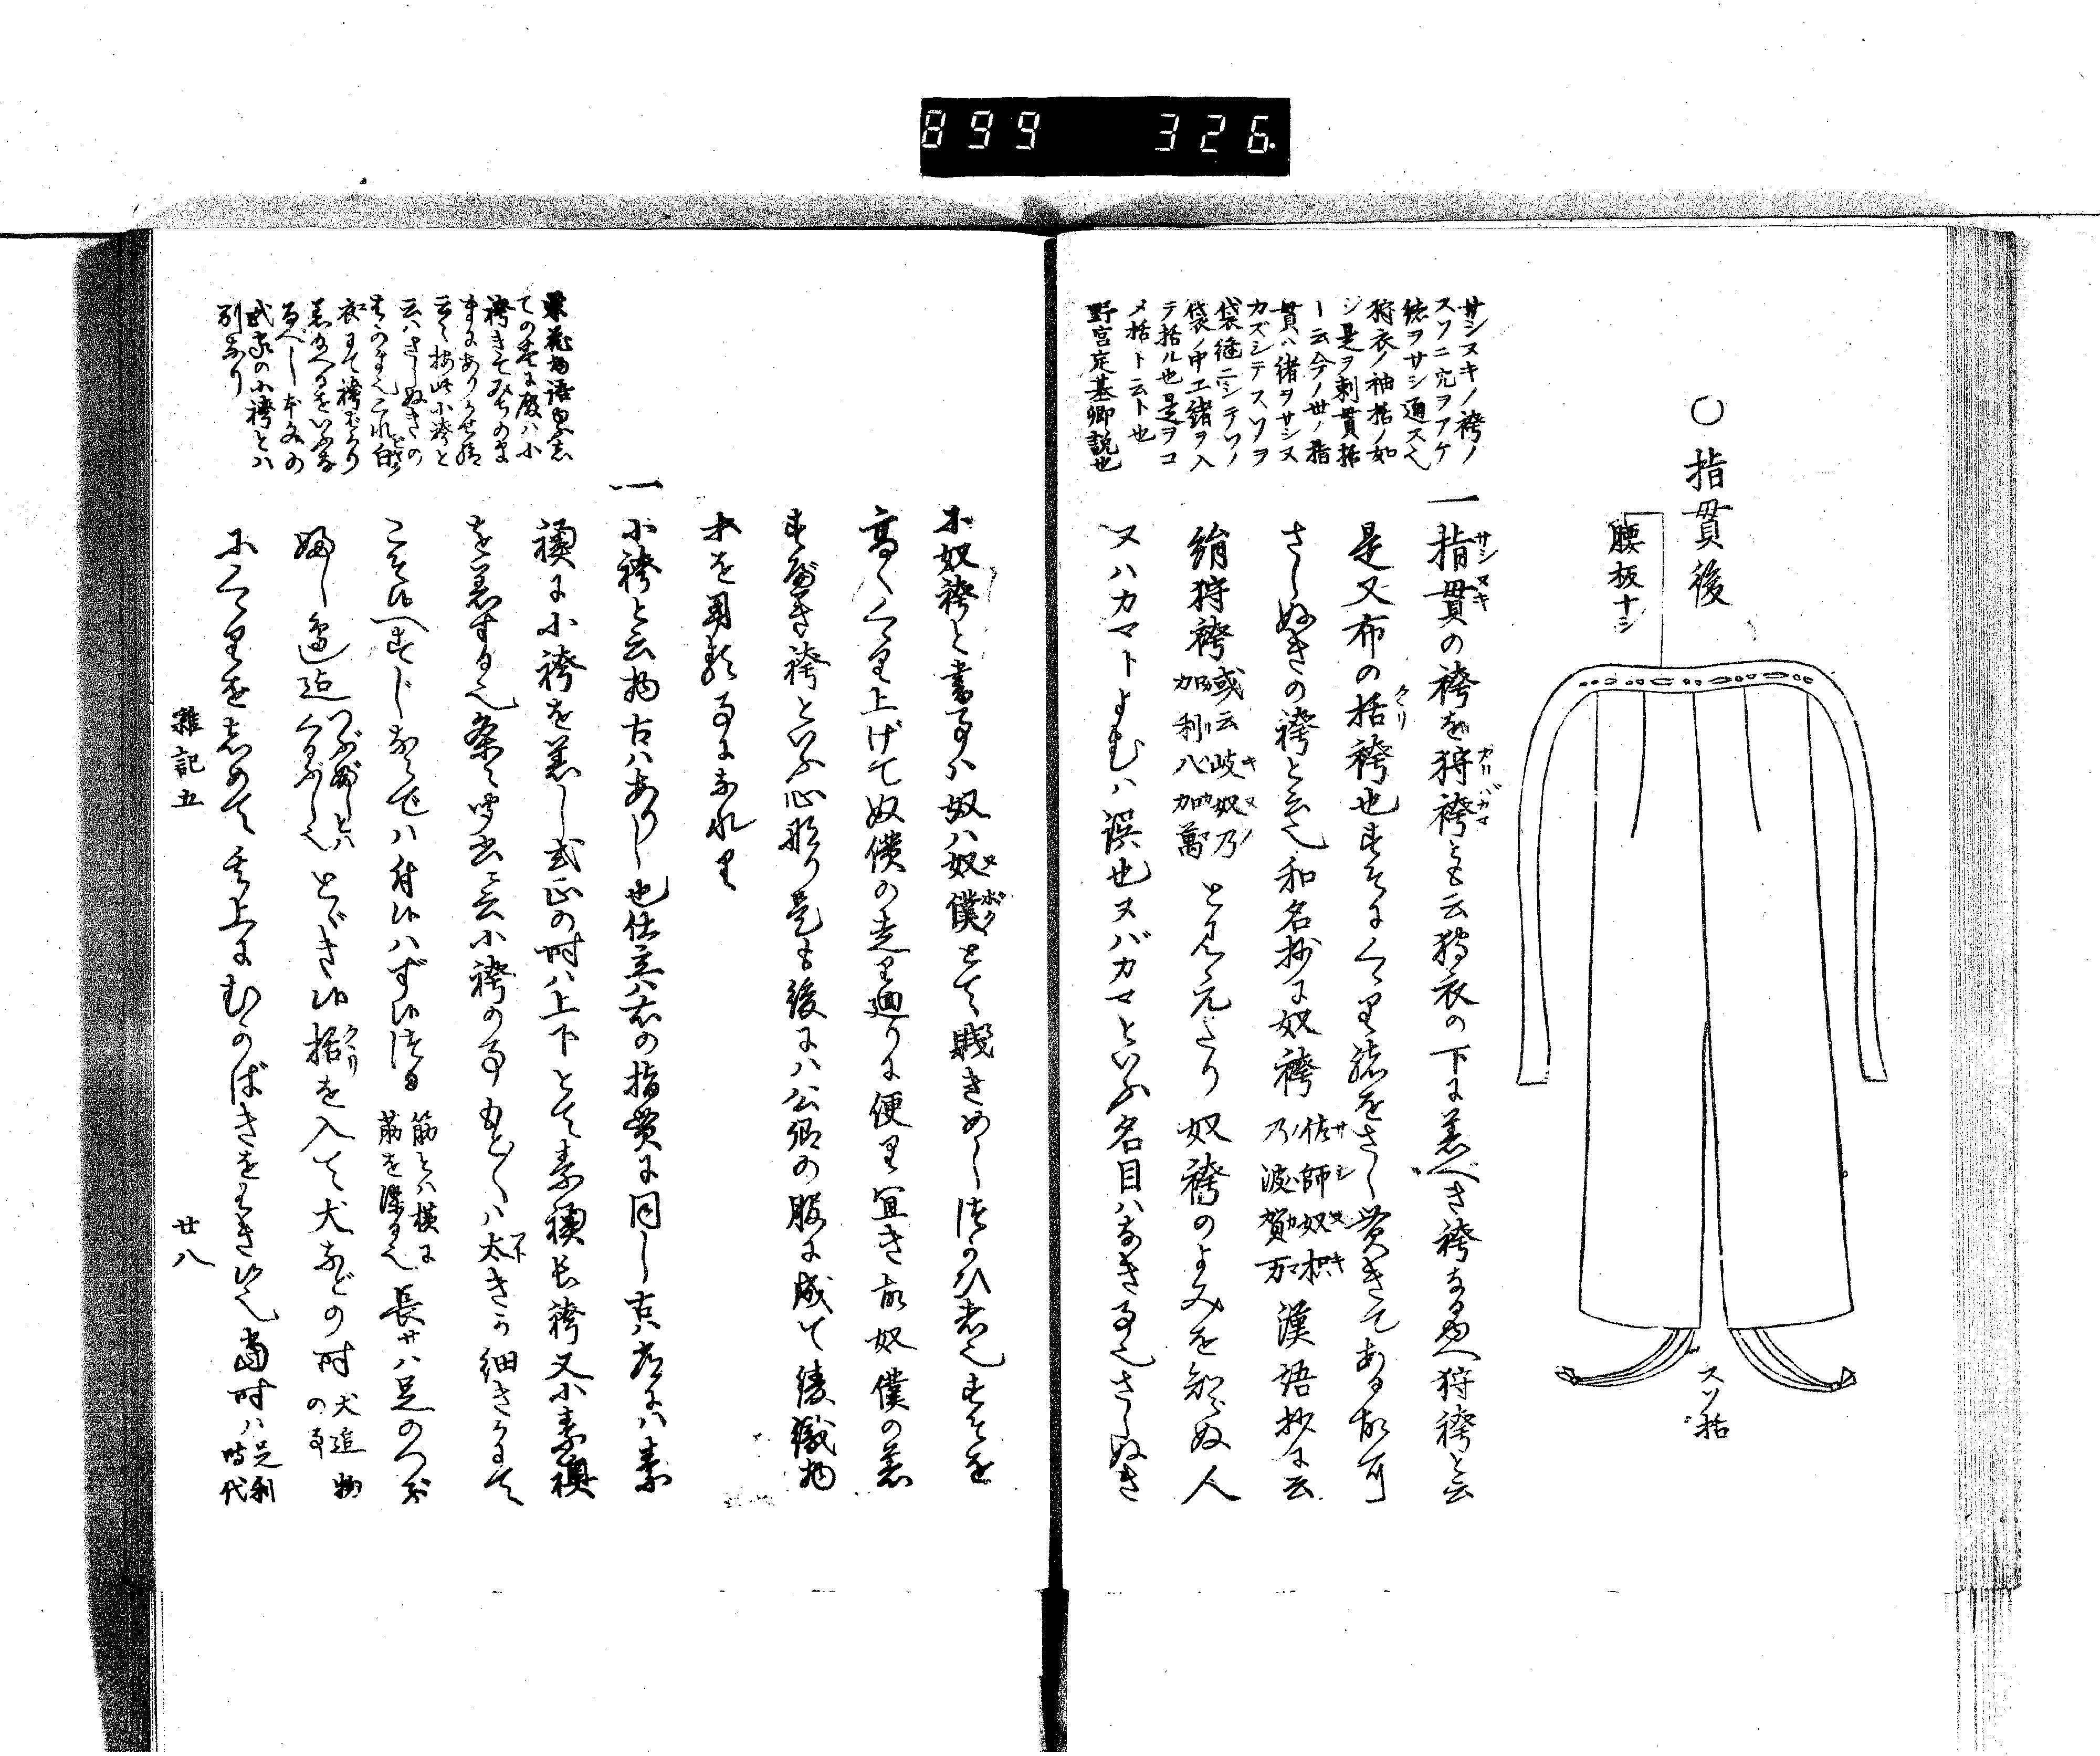 899 326.
○指貫後
腰板ナシ
スソ括
サシヌキノ袴ノ
スソニ穴ヲアケ
緒ヲサシ通ス也
狩衣ノ袖括ノ如
シ是ヲ刺貫括
ト云今ノ世ノ指
貫ハ緒ヲサシヌ
カズシテスソヲ
袋縫ニシテソノ
袋ノ中エ緒ヲ入
テ括ル也是ヲコ
メ括ト云ト也
野宮定基卿説也
一指貫の袴を狩袴とも云狩衣の下に着べき袴なるゆへ狩袴と云
サシヌキ カリバカマ
是又布の括袴也すそにくゝり緒をさし貫きてある故
クヽリ
さしぬきの袴と云也和名抄に奴袴 佐師奴枳
乃波賀万 漢語抄に云
絹狩袴 或云岐奴乃
加利八加萬 と見えたり奴袴のよみを知らぬ人
ヌハカマトよむハ誤也ヌバカマといふ名目ハなき事也さしぬき
に奴袴と書事ハ奴ハ奴僕とて賤きめしつかひ者也すそを
ヌボク
高くくゝり上げて奴僕の走り廻りに便り宜き故奴僕の着
すべき袴といふ心なり是も後にハ公卿の服に成て綾織物
を用る事になれり
一小袴と云物古ハありし也仕立ハ右の指貫に同し古ハ常にハ素
襖に小袴を着し式正の時ハ上下とて素襖長袴又小素襖
を着する也条々聞書云小袴の事もとハ太きか細きにて
こそ候へすじなどでハ付候ハず候つる 筋とハ横に
筋を染る也 長サハ足のつぶ
ふし邊迄 つぶぶしとハ
くるぶし也 とどき候括を入て犬などの時 犬追物
の事
クヽリ
にくゝりをしめて其上にむかばきをはき候也當時ハ 足利
時代
榮花物語
ての
袴きて
云々按此小袴と
云ハさしぬきの
武家の小袴とハ
別なり
雜記五
廿八